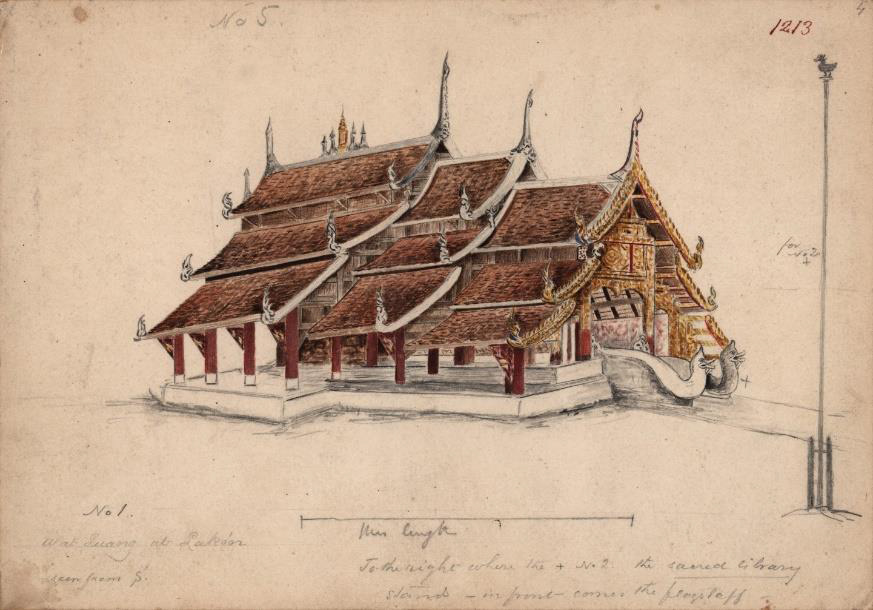 No 5.
1213
4
for
No 2
+
+
No 1.
this length
Wat Luang at Lakón
seen from S.
To the right where the + No 2. the sacred library
stands – in front comes the flagstaff